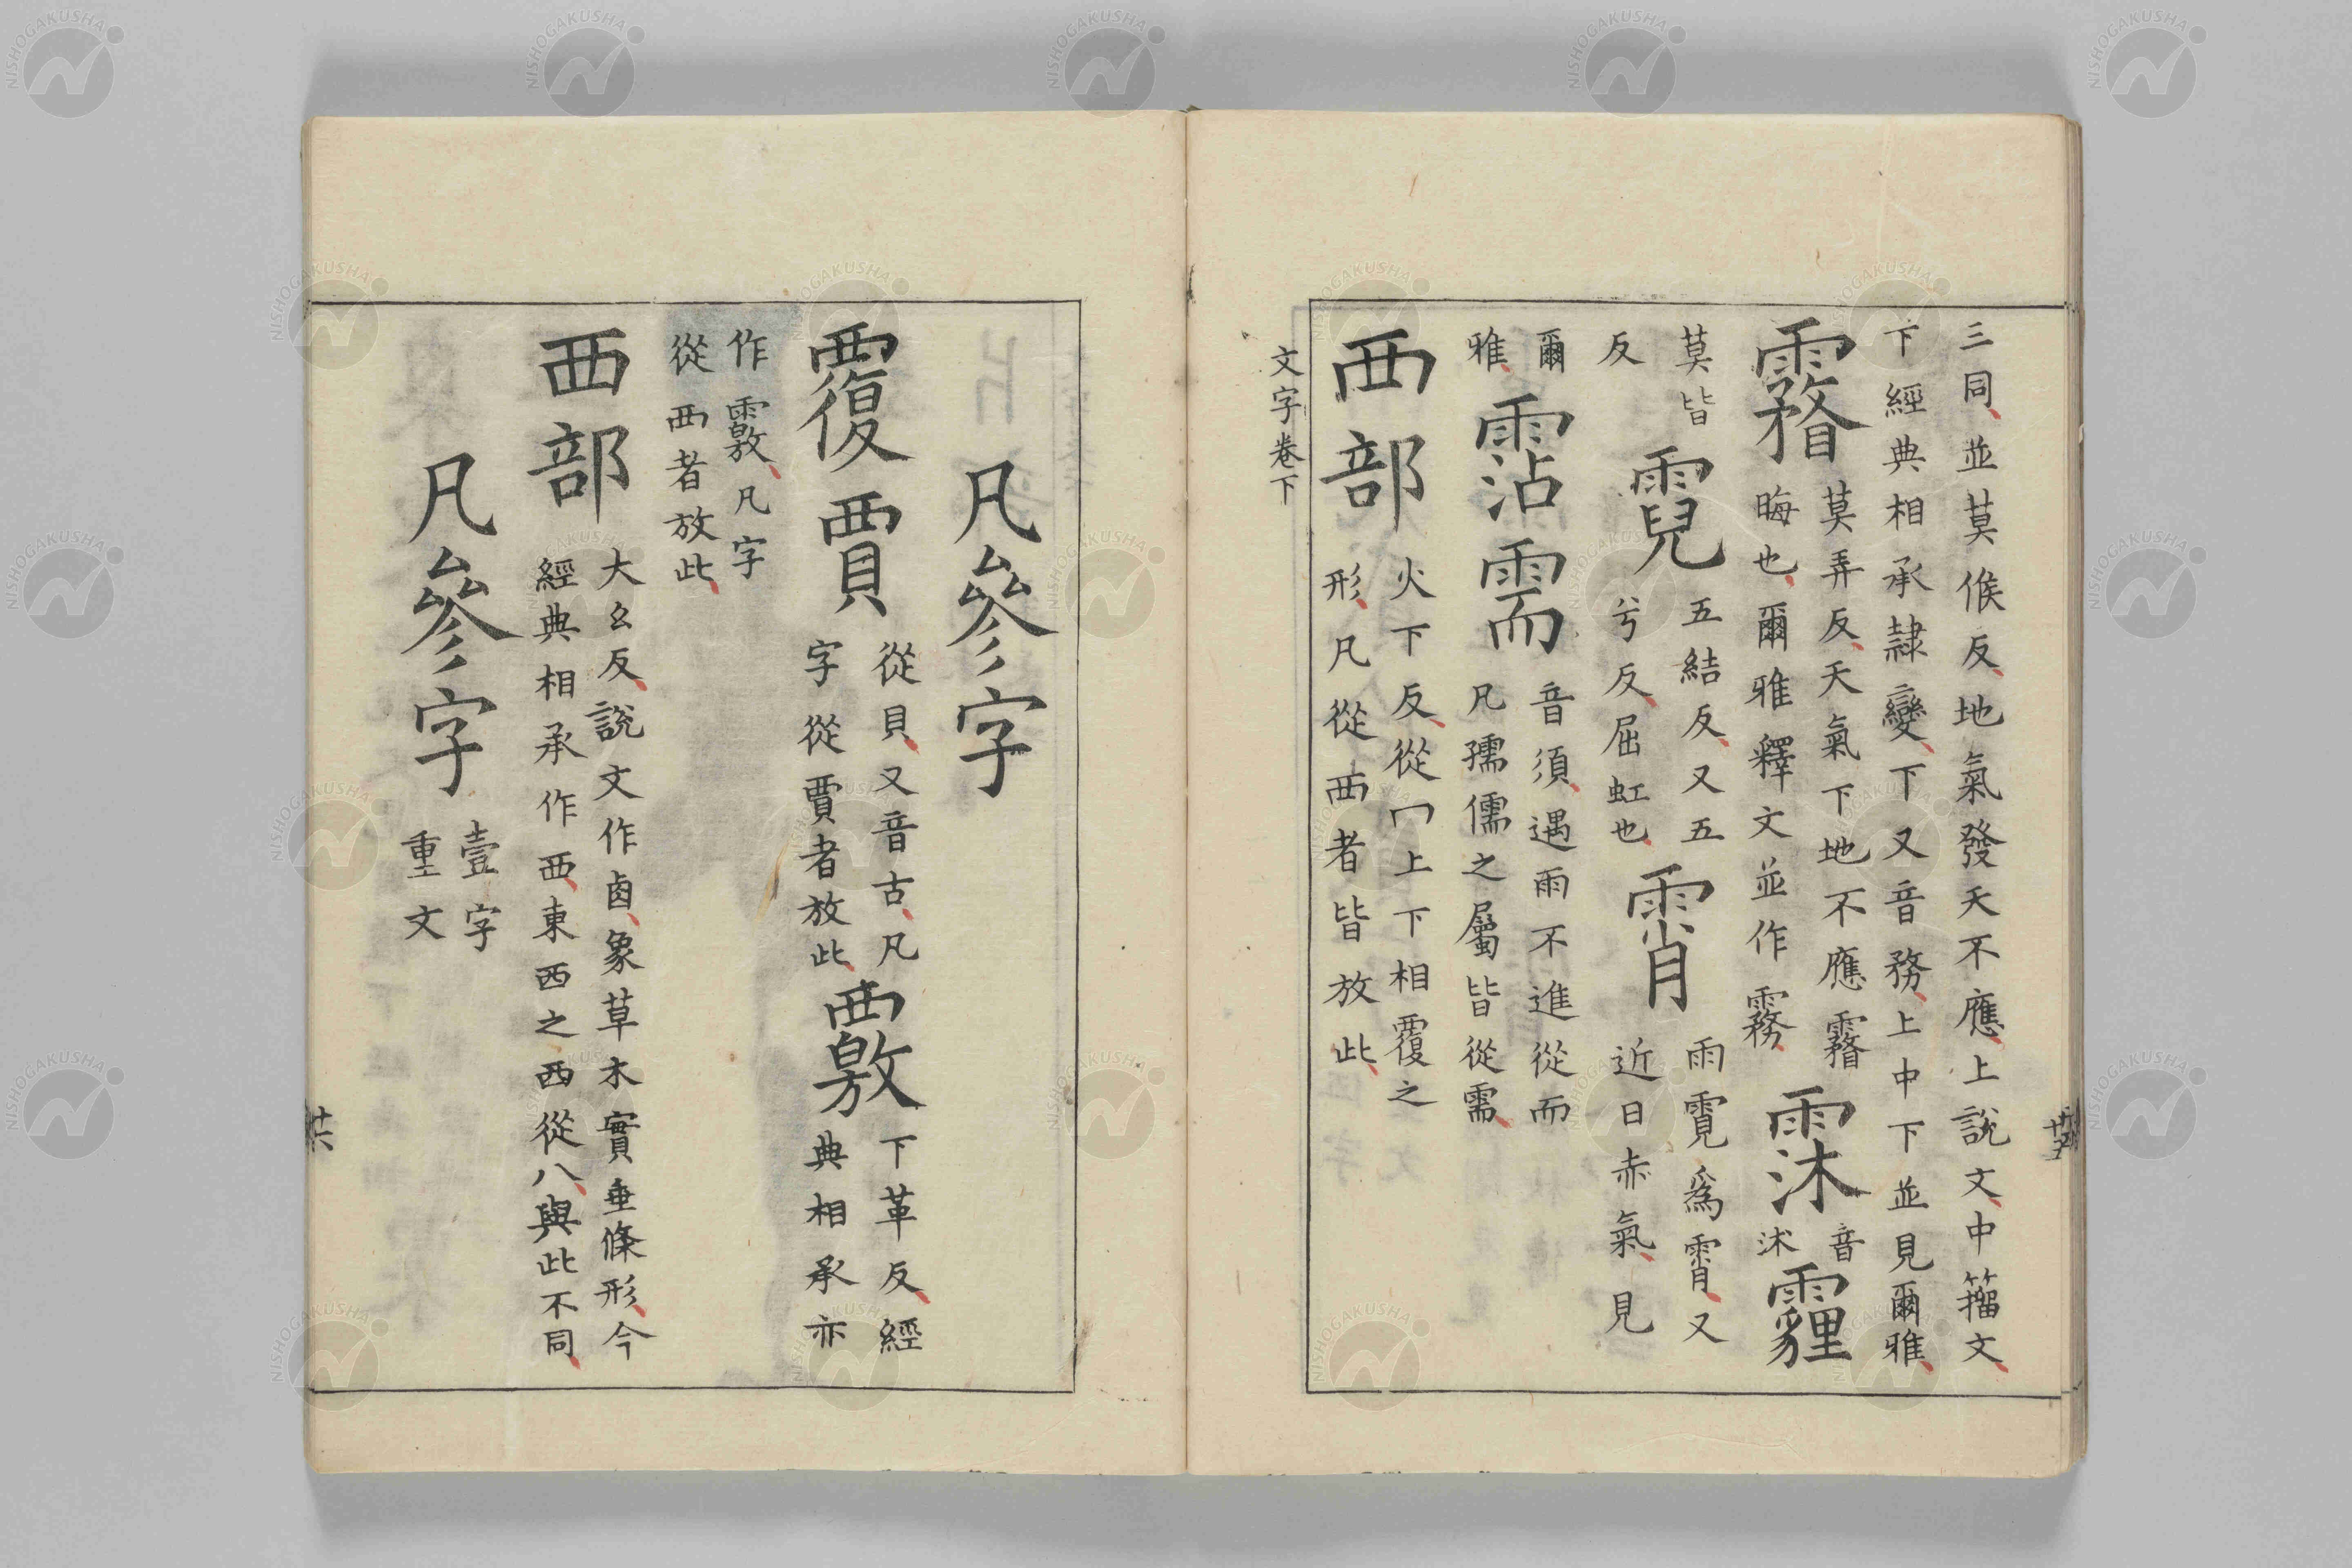 三同並莫候反地氣發天不應上說文中籀文
下經典相承隸變下又音務上中下並見爾雅
霿
莫弄反天氣下地不應霿
晦也爾雅釋文並作霧
霂
音
沐
霾
莫皆
反
霓
五結反又五
兮反屈虹也
霄
雨霓爲霄又
近日赤氣見
爾
雅
霑需
音須遇雨不進從而
凡孺儒之屬皆從需
襾部
火下反從冂上下相覆之
形凡從襾者皆放此
文字卷下
十五
凡參字
覆賈
從貝又音古凡
字從賈者放此
覈
下革反經
典相承亦
作覈凡字
從襾者放此
西部
大幺反說文作卥象草木實垂條形今
經典相承作西東西之西從八與此不同
凡參字
壹字
重文
十六
NISHOGAKUSHA